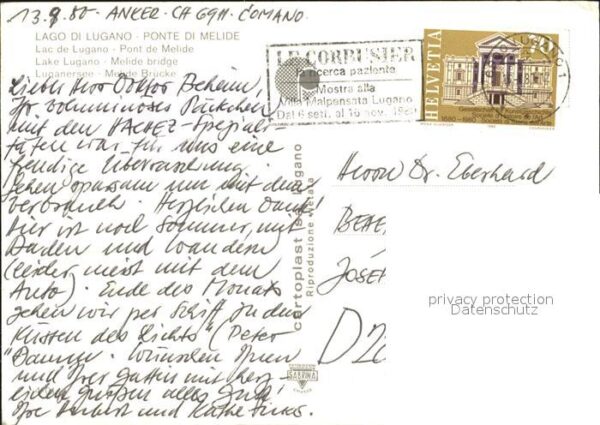 13.9.80 - ANKER - CH 6911 - COMANO
LAGO DI LUGANO - PONTE DI MELIDE
Lac de Lugano - Pont de Melide
Lake Lugano - Melide bridge
Luganersee - Melide Brücke
Lieber Herr Doktor Beheim,
Ihr voluminöses Päckchen
mit den HACHEZ-Spezial-
tafeln war für uns eine
freudige Überraschung.
Gehen sparsam um mit dem
Verbrauch. Herzlichen Dank!
Hier ist noch Sommer, mit
Baden und Wandern
(leider meist mit dem
Auto). Ende des Monats
gehen wir per Schiff zu den
"Küsten des Lichts" (Peter
Bamm). Wünschen Ihnen
und Ihrer Gattin mit herz-
lichen Grüßen alles Gute!
Ihre Herbert und
LE CORBUSIER
la ricerca paziente
Mostra alla
Villa Malpensata Lugano
Dal 6 sett. al 16 nov. 1980
HELVETIA
cartoplast sa lugano
Riproduzione vietata
Herrn Dr. Eberhard
BEHE
JOSE
D 28
privacy protection
Datenschutz